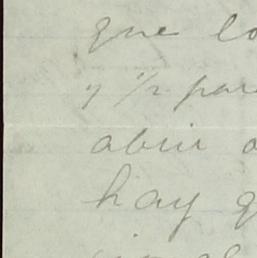 que lo
y 1/2 para
abrir a
hay q